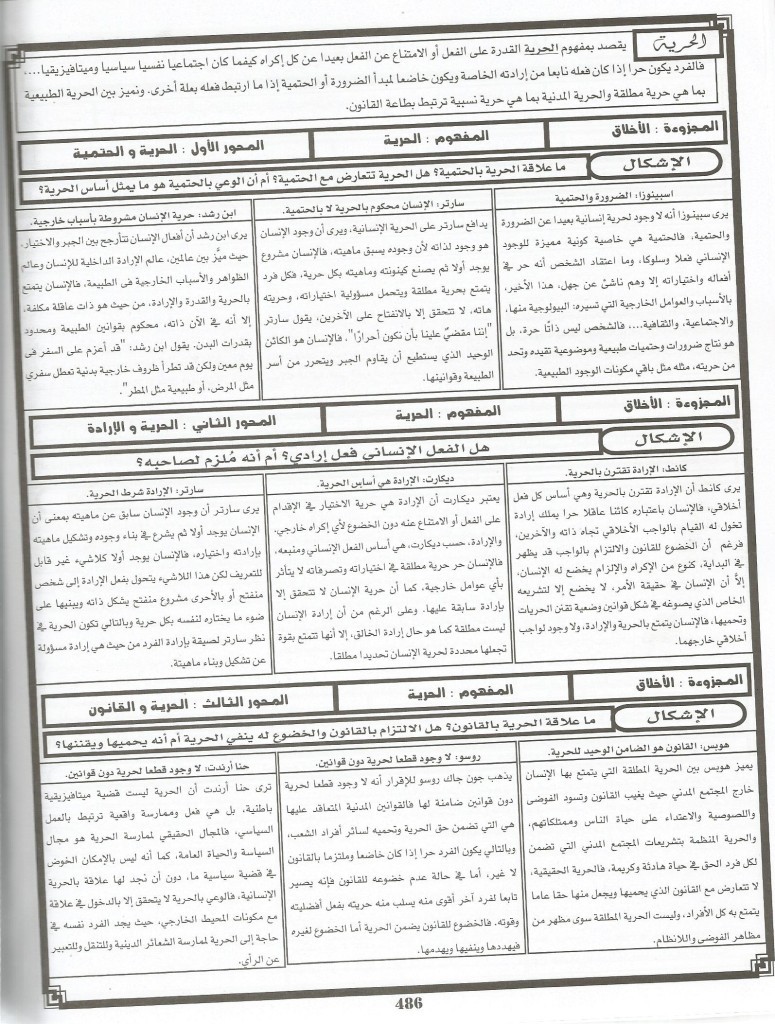 الحرية
يقصد بمفهوم الحرية القدرة على الفعل أو الامتناع عن الفعل بعيدا عن كل إكراه كيفما كان اجتماعيا نفسيا سياسيا وميتافيزيقيا....
فالفرد يكون حرا إذا كان فعله نابعا من إرادته الخاصة ويكون خاضعا لمبدأ الضرورة أو الحتمية إذا ما ارتبط فعله بعلة أخرى. ونميز بين الحرية الطبيعية
بما هي حرية مطلقة والحرية المدنية بما هي حرية نسبية ترتبط بطاعة القانون.
المجزوءة : الأخلاق
المفهوم : الحرية
المحور الأول : الحرية و الحتمية
الإشكال
ما علاقة الحرية بالحتمية؟ هل الحرية تتعارض مع الحتمية؟ أم أن الوعي بالحتمية هو ما يمثل أساس الحرية؟
اسبينوزا: الضرورة والحتمية
يرى سبينوزا أنه لا وجود لحرية إنسانية بعيدا عن الضرورة
والحتمية، فالحتمية هي خاصية كونية مميزة للوجود
الإنساني فعلا وسلوكا، وما اعتقاد الشخص أنه حر في
أفعاله واختياراته إلا وهم ناشئ عن جهل، هذا الأخير،
بالأسباب والعوامل الخارجية التي تسيره: البيولوجية منها،
والاجتماعية، والثقافية.... فالشخص ليس ذاتًا حرة، بل
هو نتاج ضرورات وحتميات طبيعية وموضوعية تقيده وتحد
من حريته، مثله مثل باقي مكونات الوجود الطبيعية.
سارتر: الإنسان محكوم بالحرية لا بالحتمية.
يدافع سارتر على الحرية الإنسانية، ويرى أن وجود الإنسان
هو وجود لذاته لأن وجوده يسبق ماهيته، فالإنسان مشروع
يوجد أولا ثم يصنع كينونته وماهيته بكل حرية، فكل فرد
يتمتع بحرية مطلقة ويتحمل مسؤولية اختياراته، وحريته
هاته، لا تتحقق إلا بالانفتاح على الآخرين، يقول سارتر
"إننا مقضيٌ علينا بأن نكون أحرارًا". فالإنسان هو الكائن
الوحيد الذي يستطيع أن يقاوم الجبر ويتحرر من أسر
الطبيعة وقوانينها.
ابن رشد: حرية الإنسان مشروطة بأسباب خارجية.
يرى ابن رشد أن أفعال الإنسان تتأرجح بين الجبر والاختيار،
حيث ميز بين عالمين، عالم الإرادة الداخلية للإنسان وعالم
الظواهر والأسباب الخارجية في الطبيعة، فالإنسان يتمتع
بالحرية والقدرة والإرادة، من حيث هو ذات عاقلة مكلفة،
إلا أنه في الآن ذاته، محكوم بقوانين الطبيعة ومحدود
بقدرات البدن. يقول ابن رشد: "قد أعزم على السفر في
يوم معين ولكن قد تطرأ ظروف خارجية بدنية تعطل سفري
مثل المرض، أو طبيعية مثل المطر".
المجزوءة : الأخلاق
المفهوم : الحرية
المحور الثاني : الحرية و الإرادة
الإشكال
هل الفعل الإنساني فعل إرادي؟ أم أنه مُلزم لصاحبه؟
كانط: الإرادة تقترن بالحرية.
يرى كانط أن الإرادة تقترن بالحرية وهي أساس كل فعل
أخلاقي، فالإنسان باعتباره كائنا عاقلا حرا يملك إرادة
تخول له القيام بالواجب الأخلاقي تجاه ذاته والآخرين،
فرغم أن الخضوع للقانون والالتزام بالواجب قد يظهر
في البداية، كنوع من الإكراه والإلزام يخضع له الإنسان،
إلاَّ أن الإنسان في حقيقة الأمر، لا يخضع إلا لتشريعه
الخاص الذي يصوغه في شكل قوانين وضعية تقنن الحريات
وتحميها، فالإنسان يتمتع بالحرية والإرادة، ولا وجود لواجب
أخلاقي خارجهما.
ديكارت: الإرادة هي أساس الحرية.
يعتبر ديكارت أن الإرادة هي حرية الاختيار في الإقدام
على الفعل أو الامتناع عنه دون الخضوع لأي إكراه خارجي.
والإرادة، حسب ديكارت، هي أساس الفعل الإنساني ومنبعه،
فالإنسان حر حرية مطلقة في اختياراته وتصرفاته لا يتأثر
بأي عوامل خارجية، كما أن حرية الإنسان لا تتحقق إلا
بإرادة سابقة عليها، وعلى الرغم من أن إرادة الإنسان
ليست مطلقة كما هو حال إرادة الخالق، إلا أنها تتمتع بقوة
تجعلها محددة لحرية الإنسان تحديدا مطلقا.
سارتر: الإرادة شرط الحرية.
يرى سارتر أن وجود الإنسان سابق عن ماهيته بمعنى أن
الإنسان يوجد أولا ثم يشرع في بناء وجوده وتشكيل ماهيته
بإرادته واختياره، فالإنسان يوجد أولا كلاشيء غير قابل
للتعريف لكن هذا اللاشيء يتحول بفعل الإرادة إلى شخص
منفتح أو بالأحرى مشروع منفتح يشكل ذاته ويبنيها على
ضوء ما يختاره لنفسه بكل حرية وبالتالي تكون الحرية في
نظر سارتر لصيقة بإرادة الفرد من حيث هي إرادة مسؤولة
عن تشكيل وبناء ماهيتة.
المجزوءة : الأخلاق
المفهوم : الحرية
المحور الثالث : الحرية و القانون
الإشكال
ما علاقة الحرية بالقانون؟ هل الالتزام بالقانون والخضوع له ينفي الحرية أم أنه يحميها ويقننها؟
هوبس: القانون هو الضامن الوحيد للحرية.
يميز هوبس بين الحرية المطلقة التي يتمتع بها الإنسان
خارج المجتمع المدني حيث يغيب القانون وتسود الفوضى
واللصوصية والاعتداء على حياة الناس وممتلكاتهم،
والحرية المنظمة بتشريعات المجتمع المدني التي تضمن
لكل فرد الحق في حياة هادئة وكريمة. فالحرية الحقيقية،
لا تتعارض مع القانون الذي يحميها ويجعل منها حقا عاما
يتمتع به كل الأفراد، وليست الحرية المطلقة سوى مظهر من
مظاهر الفوضى واللانظام.
روسو: لا وجود قطعا لحرية دون قوانين.
يذهب جون جاك روسو للإقرار أنه لا وجود قطعا لحرية
دون قوانين ضامنة لها فالقوانين المدنية المتعاقد عليها
هي التي تضمن حق الحرية وتحميه لسائر أفراد الشعب،
وبالتالي يكون الفرد حرا إذا كان خاضعا وملتزما بالقانون
لا غير، أما في حالة عدم خضوعه للقانون فإنه يصير
تابعا لفرد آخر أقوى منه يسلب منه حريته بفعل أفضليته
وقوته. فالخضوع للقانون يضمن الحرية أما الخضوع لغيره
فيهددها وينفيها ويهدمها.
حنا أرندت: لا وجود قطعا لحرية دون قوانين.
ترى حنا أرندت أن الحرية ليست قضية ميتافيزيقية
باطنية، بل هي فعل وممارسة واقعية ترتبط بالعمل
السياسي، فالمجال الحقيقي لممارسة الحرية هو مجال
السياسة والحياة العامة، كما أنه ليس بالإمكان الخوض
في قضية سياسية ما، دون أن نجد لها علاقة بالحرية
الإنسانية. فالوعي بالحرية لا يتحقق إلا بالدخول في علاقة
مع مكونات المحيط الخارجي، حيث يجد الفرد نفسه في
حاجة إلى الحرية لممارسة الشعائر الدينية وللتنقل وللتعبير
عن الرأي.
486